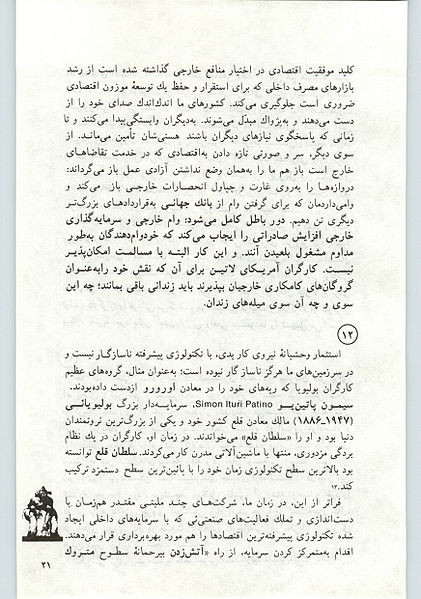 کلید موفقیت اقتصادی در اختیار منافع خارجی گذاشته شده است از رشد
بازارهای مصرف داخلی که برای استقرار و حفظ یك توسعهٔ موزون اقتصادی
ضروری است جلوگیری می‌کند. کشورهای ما اندك‌اندك صدای خود را از
دست می‌دهند و به‌پژواك مبدّل می‌شوند. به‌دیگران وابستگی‌پیدا می‌کنند و تا
زمانی که پاسخگوی نیازهای دیگران باشند هستی‌شان تأمین می‌مانـد. از
سوی دیگر، سر و صورتی تازه دادن به‌اقتصادی که در خدمت تقاضاهـای
خارج است باز هم ما را به‌همان وضع نداشتن آزادی عمل باز می‌گرداند:
دروازه‌هـا را به‌روی غارت و چپاول انحصـارات خارجـی بـاز می‌کند و
وامی‌داردمان که برای گرفتن وام از بانك جهانـی به‌قراردادهـای بزرگ‌تـر
دیگری تن دهیم. دور باطل کامل می‌شود: وام خارجی و سرمایه‌گذاری
خارجی افزایش صادراتی را ایجاب می‌کند که خودوام‌دهندگان به‌طور
مداوم مشغول بلعیدن آنند. و این کار البتـه با مسالمت امکان‌پذیـر
نیسـت. کارگران آمریکـای لاتیـن برای آن که نقش خود رابه‌عنوان
گروگان‌های کامکاری خارجیان بپذیرند باید زندانی باقی بمانند؛ چه این
سوی و چه آن سوی میله‌های زندان.
۱۲
استثمار وحشیانهٔ نیروی کار یدی، با تکنولوژی پیشرفته ناسازگار نیست و
در سرزمین‌های ما هرگز ناساز گار نبوده است؛ به‌عنوان مثال، گروه‌های عظیم
کارگران بولیویا که ریه‌های خود را در معادن اورورو ازدست داده‌بودند.
سیمـون پاتین‌یـو Simon Ituri Patino، سرمایـه‌دار بزرگ بولیویائـی
(۱۹۴۷ـ۱۸۸۶) مالك معادن قلع کشور خود و یکی از بزرگ‌ترین ثروتمندان
دنیا بود و او را «سلطان قلع» می‌خواندند. در زمان او، کارگران در یك نظام
بردگی مزدوری، منتها با ماشین‌آلاتی مدرن کار می‌کردند. سلطان قلع توانسته
بود بالاترین سطح تکنولوژی زمان خود را با پائین‌ترین سطح دستمزد ترکیب
کند.
فراتر از این، در زمان ما، شرکت‌های چنـد ملیتـی مقتدر همزمـان با
دست‌اندازی و تملك فعالیت‌های صنعتی‌ئی که با سرمایه‌های داخلی ایجاد
شده تکنولوژی پیشرفته‌ترین اقتصادها را هم مورد بهره‌برداری قرار می‌دهند.
اقدام به‌متمرکز کردن سرمایه، از راه «آتش‌زدن بیرحمانهٔ سطـوح متـروك
۲۱